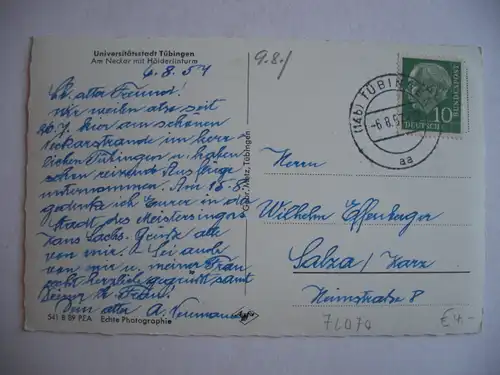 Universitätsstadt Tübingen
Am Neckar mit Hölderlinturm
6.8.54
9.8./
Lb. alter Freund!
Wir weilen also seit
26.7. hier am schönen
Neckarstrande im herr-
lichen Tübingen u. haben
schon reizende Ausflüge
unternommen. Am 15.8.
gedenke ich Eurer in der
Stadt des Meistersingers
Hans Sachs. Grüße alle
von mir. Sei auch
von mir u. meiner Frau
recht herzlich gegrüßt samt
Deiner lb. Frau.
Dein alter A. Neumann
541 B 89 PEA Echte Photographie
Agfa
Gebr. Metz, Tübingen
(14b) TÜBINGEN
-6.8.5
aa
10
DEUTSCHE
BUNDESPOST
Herrn
Wilhelm Effenberger
Salza / Harz
Heimstraße 8